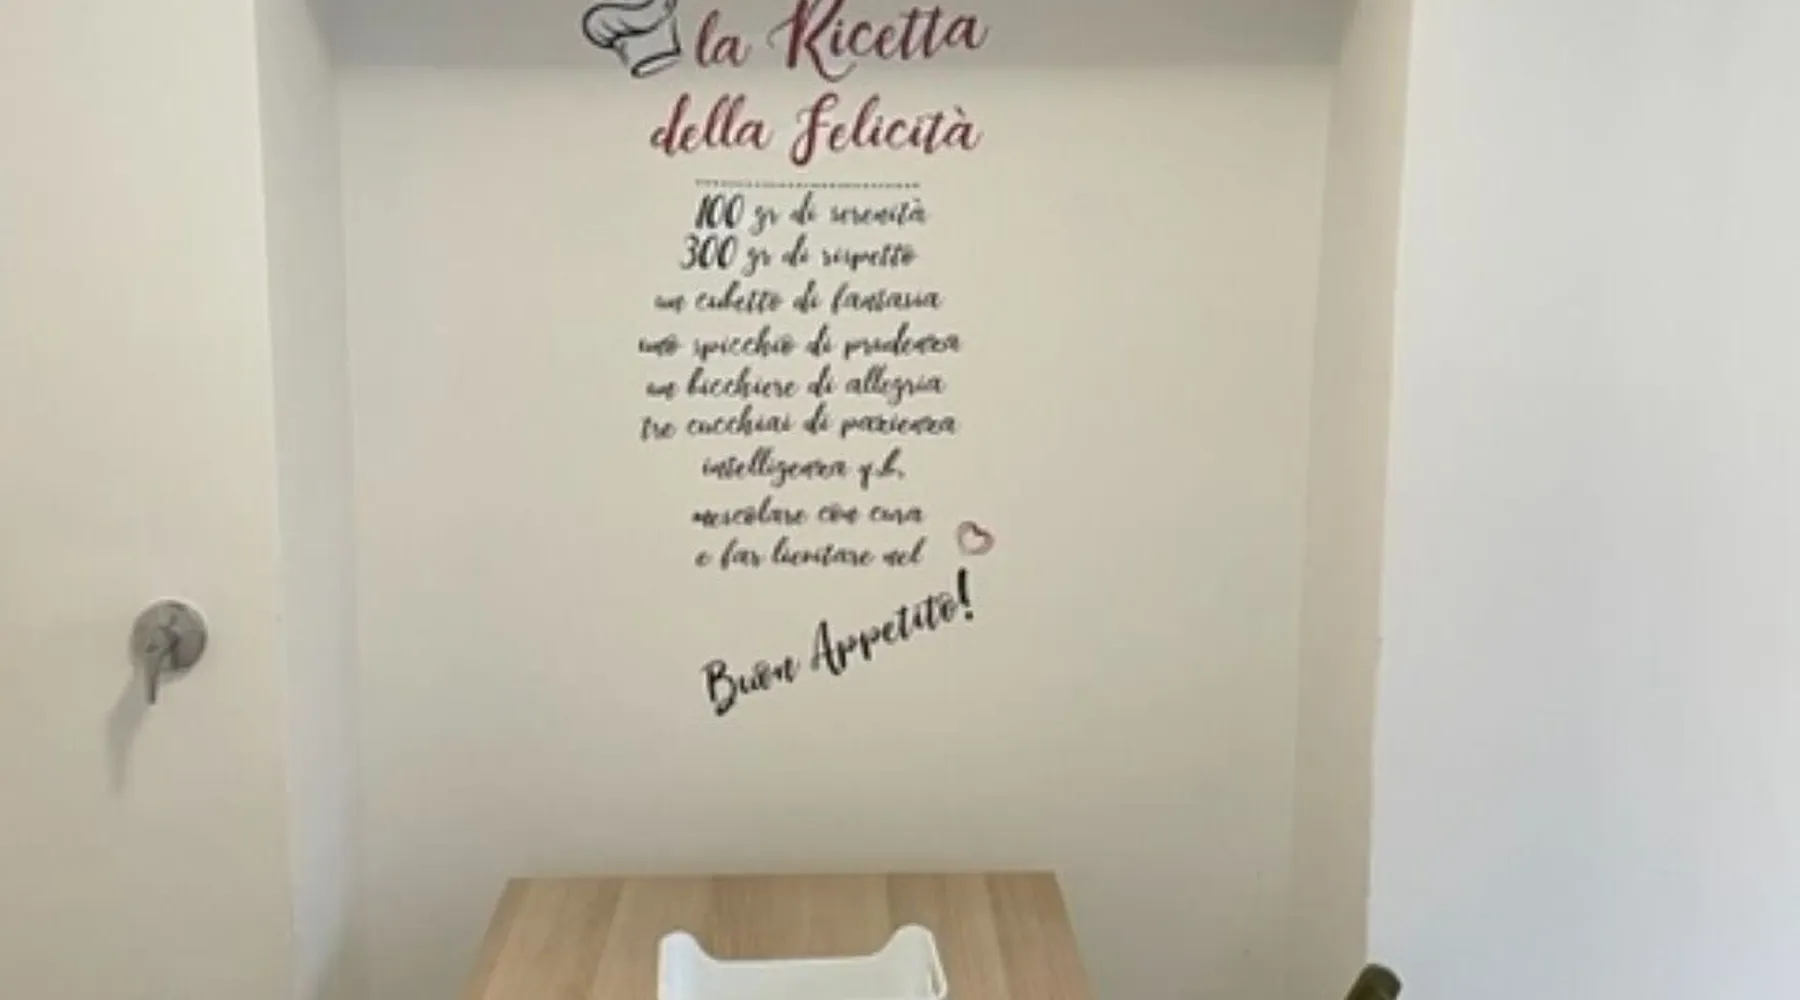 la Ricetta
della felicità
100 gr di serenità
300 gr di rispetto
un cubetto di fantasia
uno spicchio di prudenza
un bicchiere di allegria
tre cucchiai di pazienza
intelligenza q.b.
mescolare con cura
e far lievitare nel
Buon Appetito!